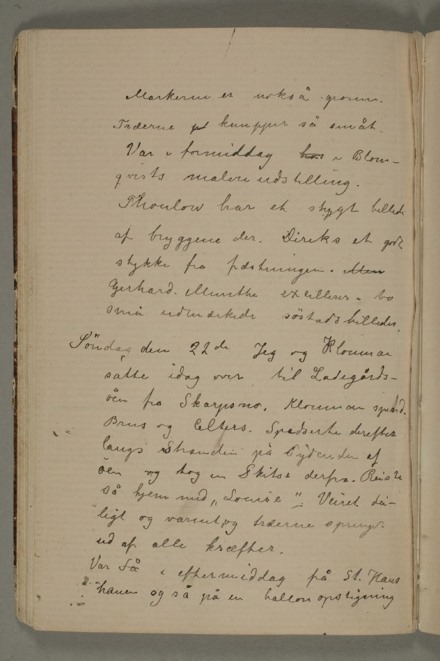 Markerne er också grønne.
Træerne knupper så småt.
Var i formiddag i Blom-
qvists maleriudstilling.
Thoulow har et stygt billede
af bryggene der. Diriks et godt
stykke fra fæstningen. Men
Gerhard. Munthe excellerer. to
små udmærkede søstadsbilleder.
Söndag den 22de Jeg og Klouman
satte idag over til Ladegårds-
öen fra Skarpsno. Klouman
Brus og Selters. Spadserte derefter
langs Stranden på Sydenden af
öen og tog en Skitse derfra. Reiste
så hjem med „Louise". Veiret dei-
ligt og varmt, og træerne springer
ud af alle kræfter.
Var så i eftermiddag på St. Hans
haugen også på en ballon opstigning